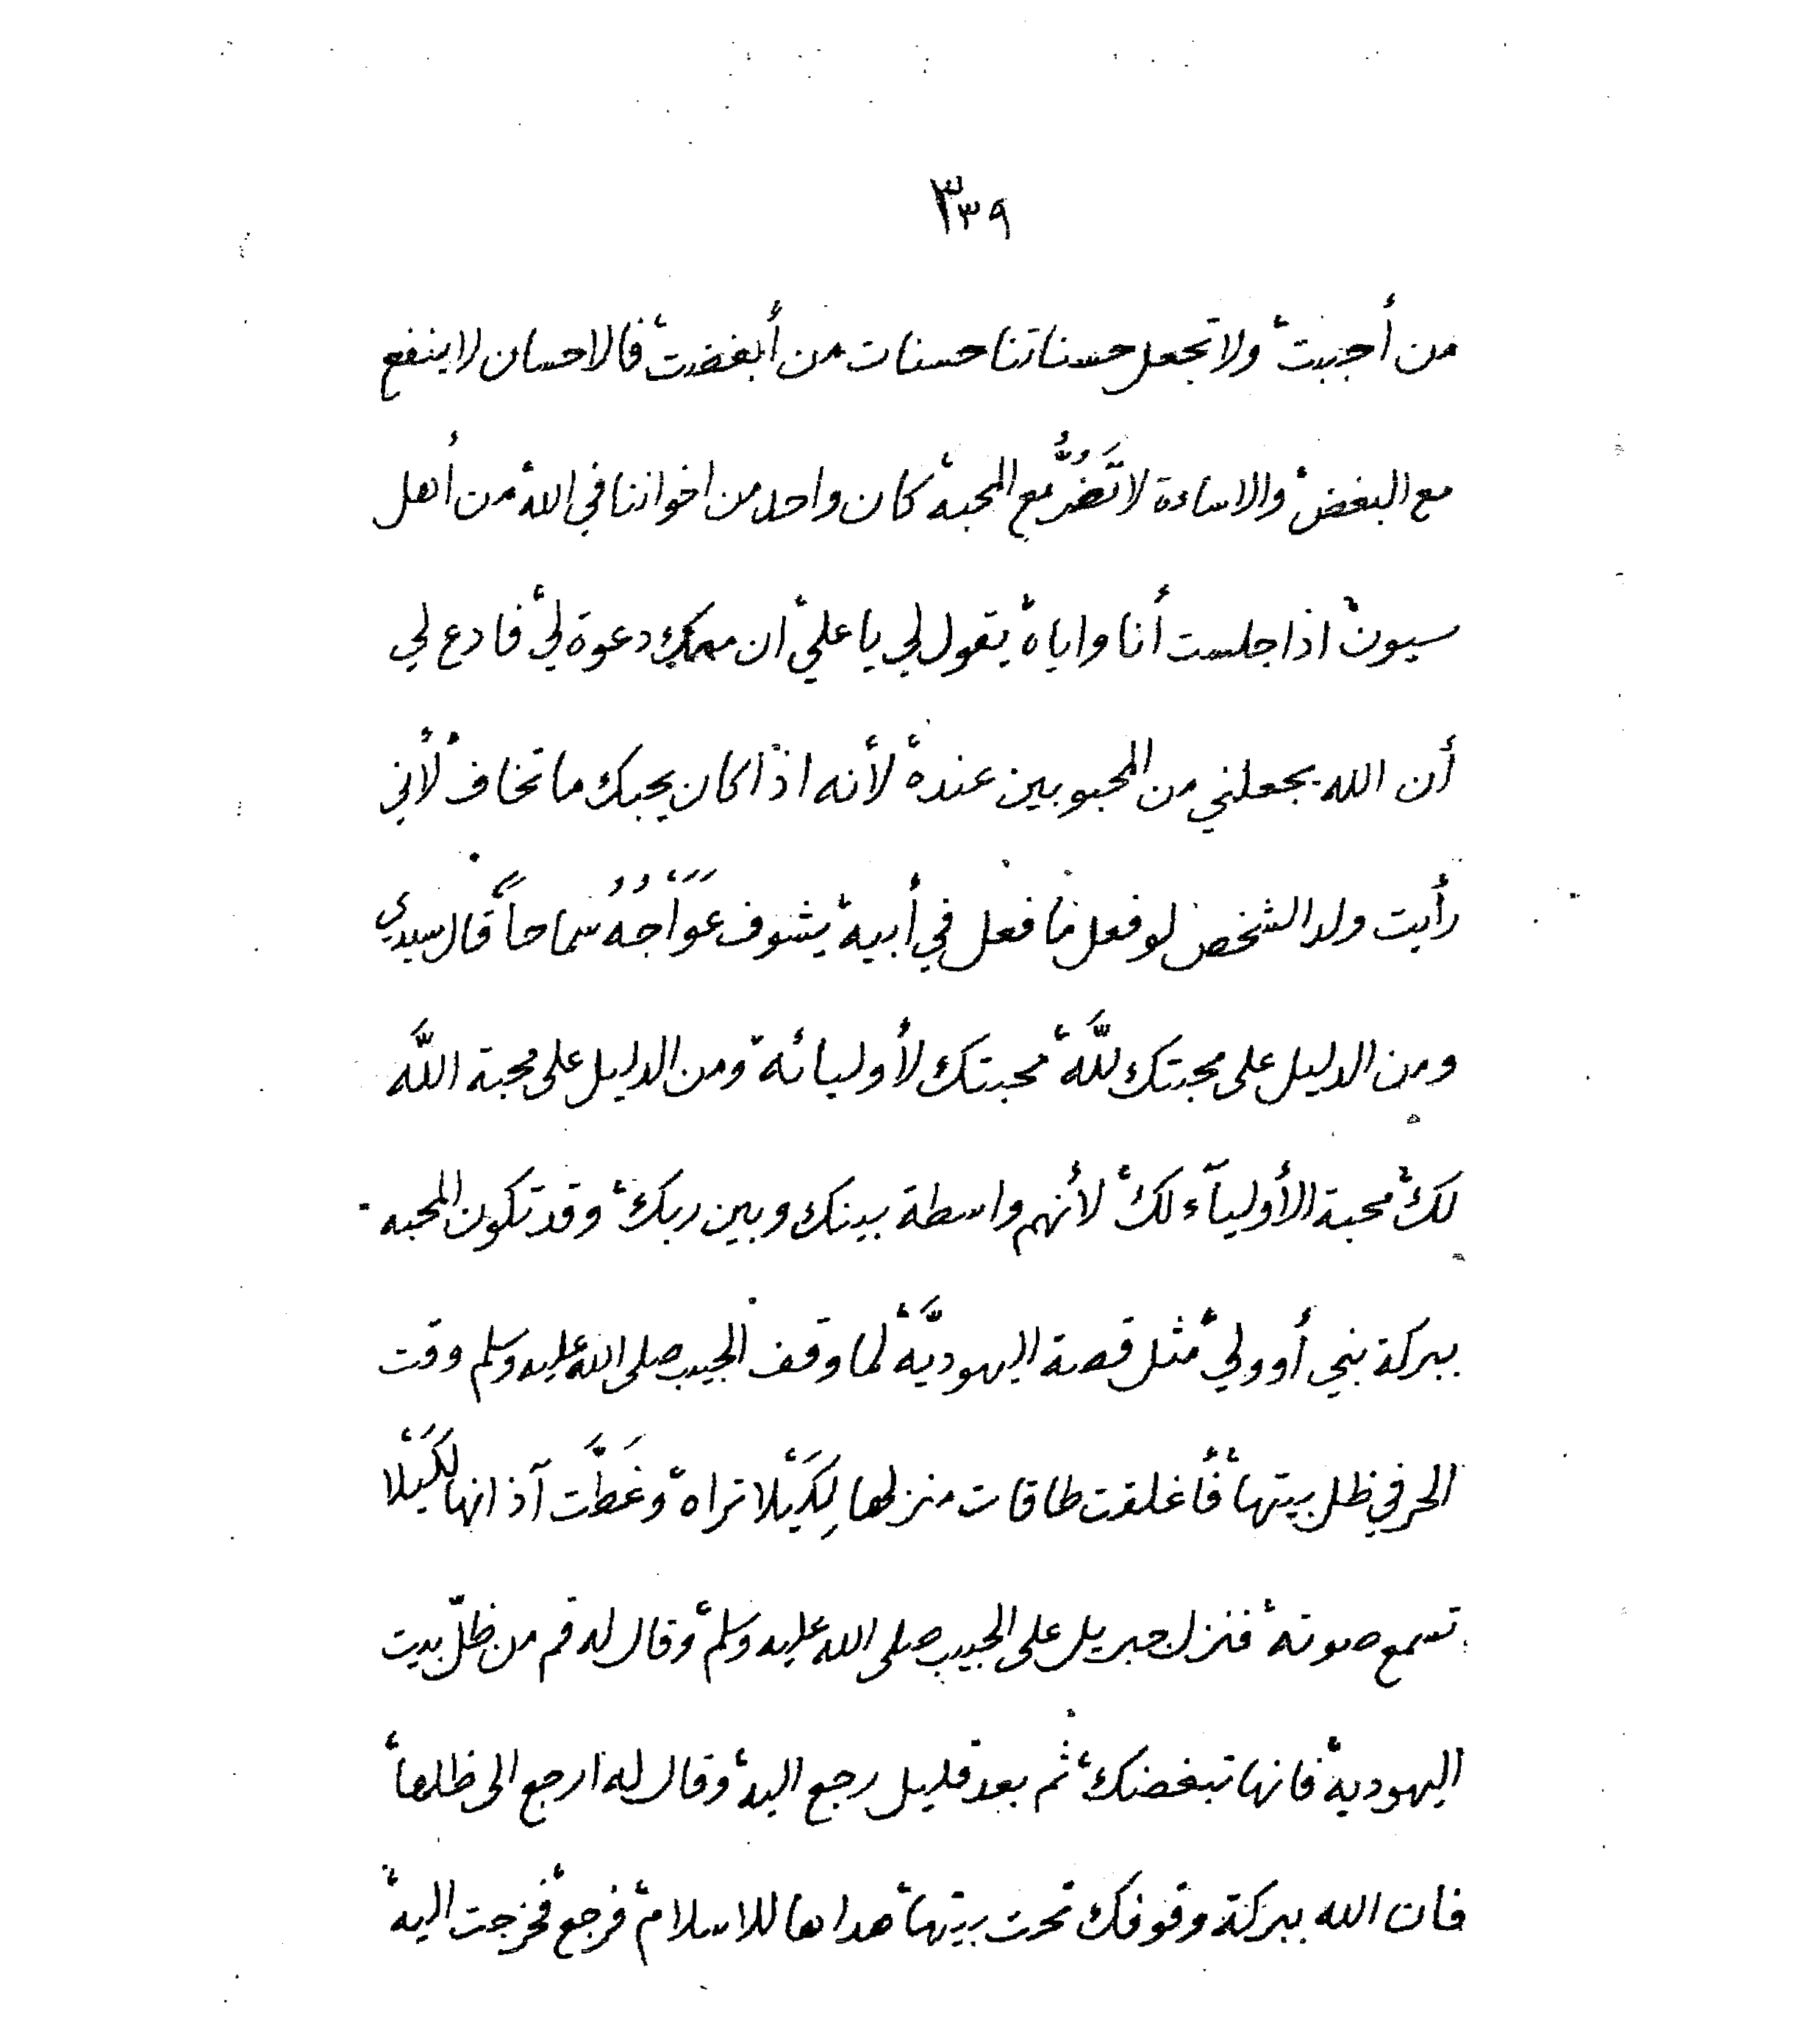 ٣٣٩
من أحببت، ولا تجعل حسناتنا حسنات من أبغضت، فالاحسان لا ينفع
مع البغض، والاساءة لا تَضُرُّ مع المحبة، كان واحد من اخواننا في الله، من أهل
سيون، اذا جلست أنا واياه، يقول لي يا علي، ان معك دعوة لي، فادع لي
أن الله يجعلني من المحبوبين عنده، لأنه اذا كان يحبك ما تخاف، لأني
رأيت ولد الشخص لو فعل ما فعل في أبيه، يشوف عَوَاَجُهُ سماحاً، قال سيدي
ومن الدليل على محبتك للَّه، محبتك لأوليائه، ومن الدليل على محبة اللَّه
لك، محبة الأوليآء لك، لأنهم واسطة بينك وبين ربك، وقد تكون المحبه
ببركة نبي أو ولي، مثل قصة اليهوديَّة، لما وقف الحبيب صلى الله عليه وسلم وقت
الحر في ظل بيتها، فأغلقت طاقات منزلها لِكَيْلا تراه، وغَطَّت آذانها لكَيْلا
تسمع صوته، فنزل جبريل على الحبيب صلى الله عليه وسلم، وقال له قم من ظلّ بيت
اليهودية، فانها تبغضك، ثم بعد قليل رجع اليه، وقال له ارجع الى ظلها،
فان الله ببركة وقوفك تحت بيتها، هداها للاسلام، فرجع، فخرجت اليه،